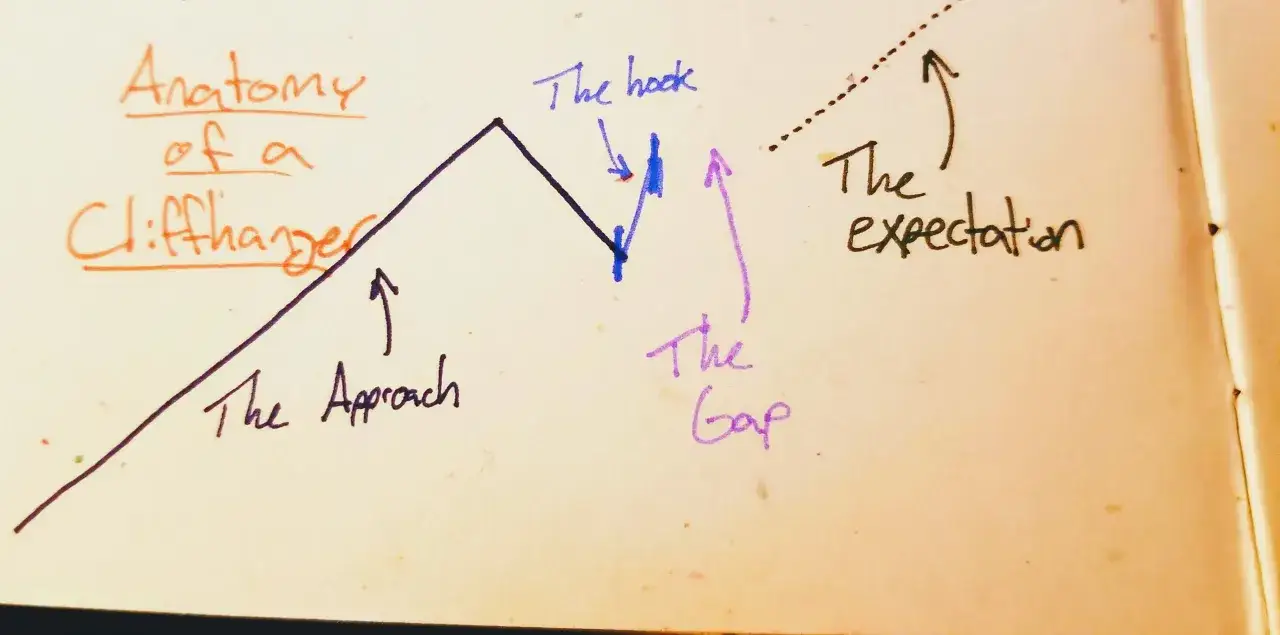 Anatomy
of a
Cliffhanger
The hook
The
expectation
The Approach
The
Gap